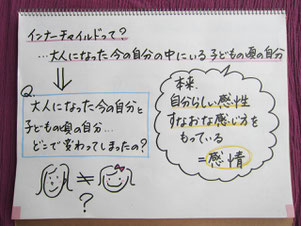 インナーチャイルドって?
…大人になった今の自分の中にいる子どもの頃の自分
Q.
大人になった今の自分と
子どもの頃の自分…
どこで変わってしまったの?
≠
?
本来、
自分らしい感性
すなおな感じ方を
もっている
=感情